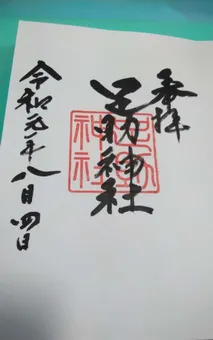 奉拝
足助神社
足助
神社
令和元年八月四日